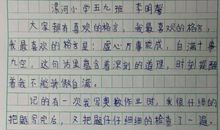 小学五九班 李明馨
大家都有喜欢的格言，我最喜欢的格言，
我最喜欢的格言是：虚心万事能成，自满十事
九空，这句话里包含着深刻的道理，时刻提醒
着我不能骄傲自满。
记的有一次写奥数作业时，我很仔细的
把题写完后，又把题仔仔细细的检查了一遍，